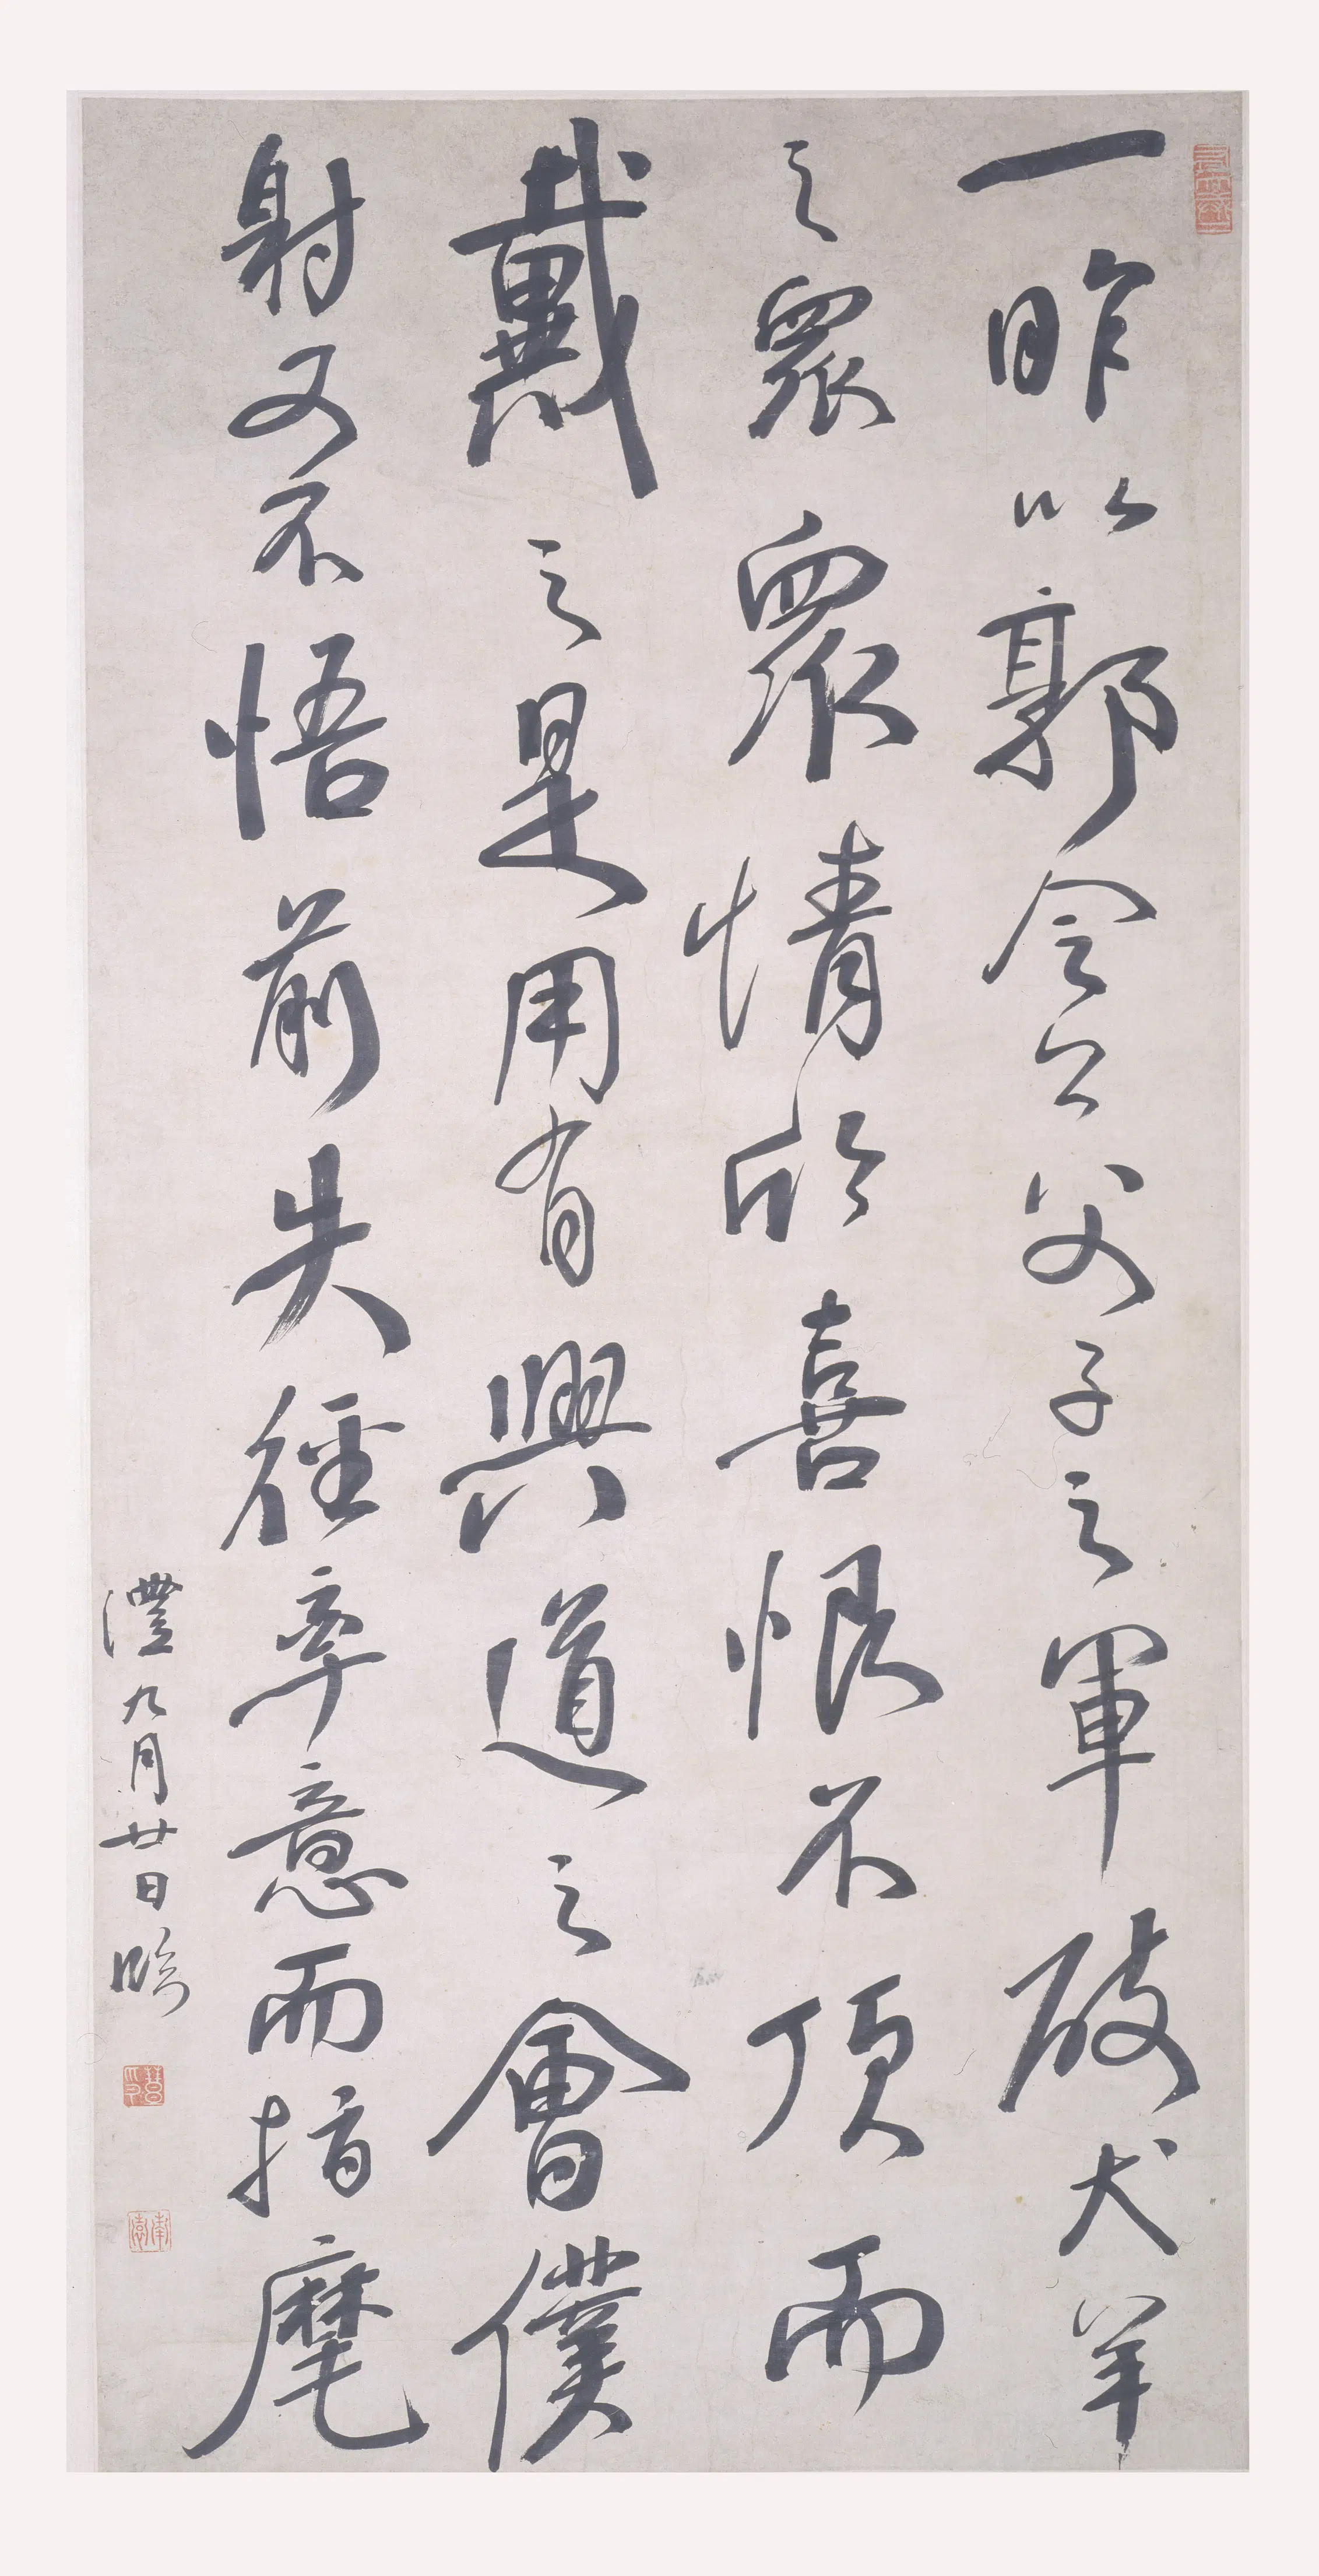 一昨以郭令公父子之軍破犬羊
之眾眾情欣喜恨不頂而
戴之是用有興道之會僕
射又不悟前失徑率意而指麾
灃九月廿日臨